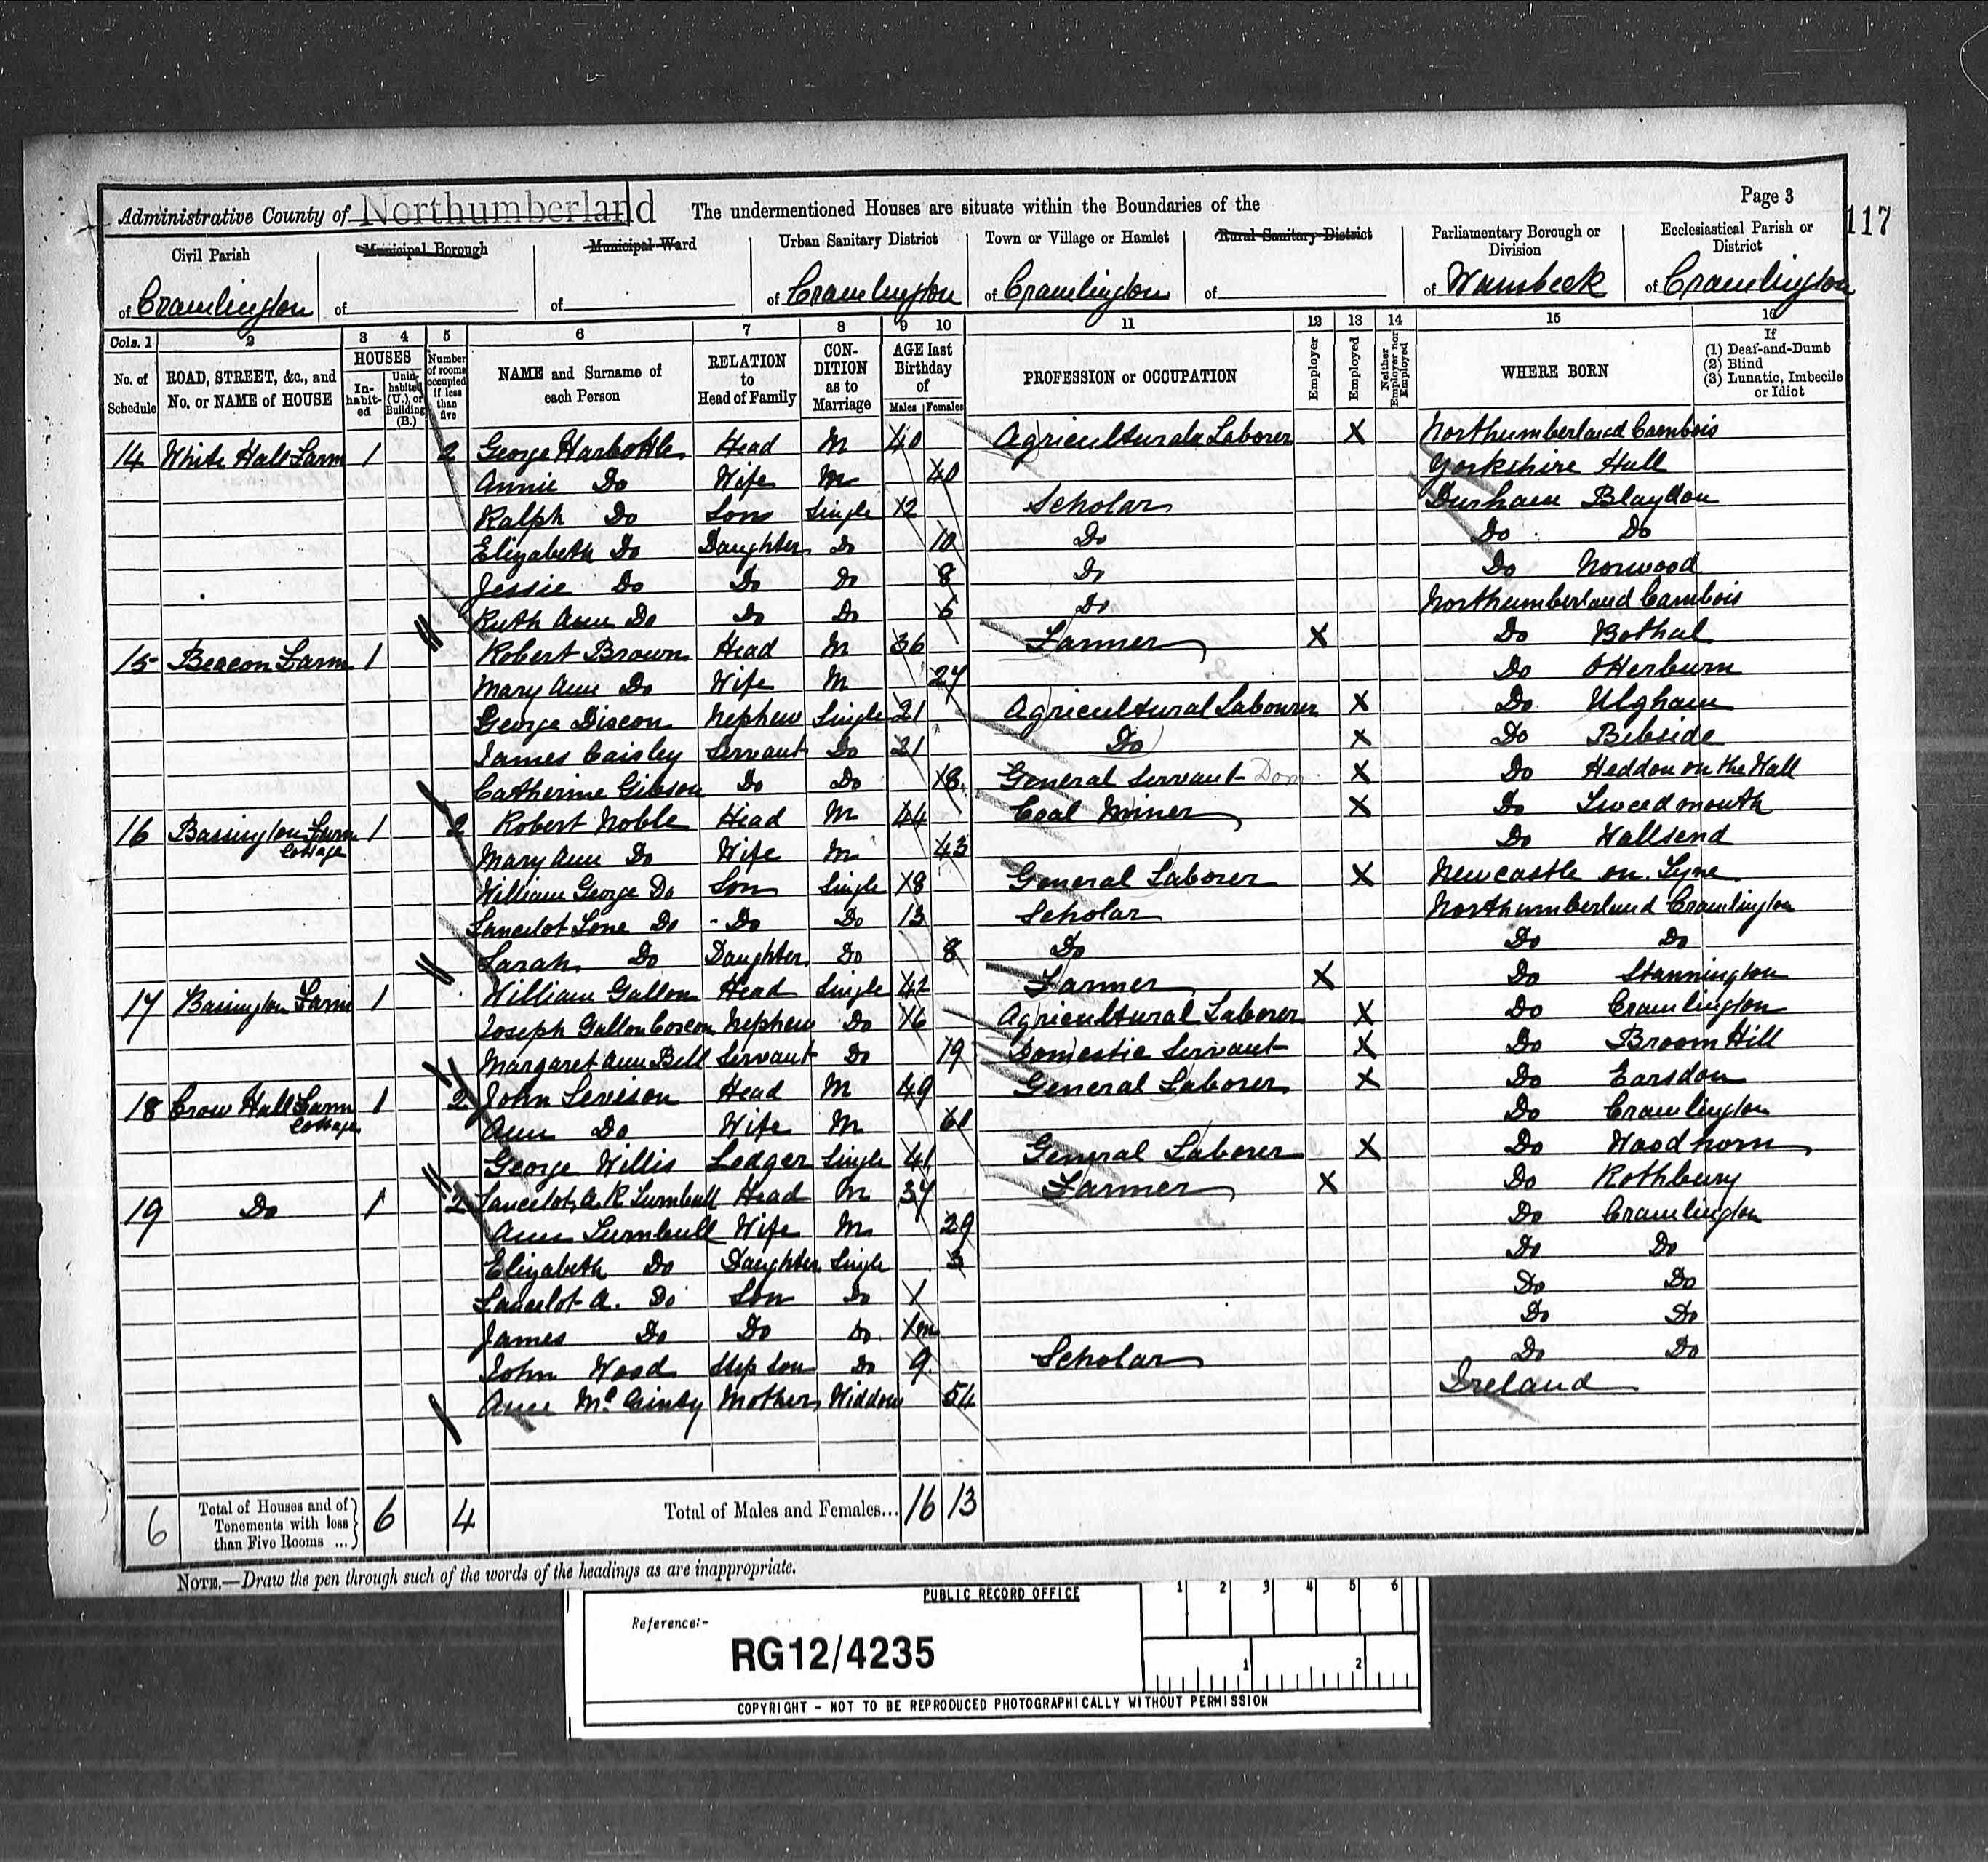 Administrative County of Northumberland The undermentioned Houses are situate within the Boundaries of the Page 3
117
Civil Parish Municipal Borough Municipal Ward Urban Sanitary District Town or Village or Hamlet Rural Sanitary District Parliamentary Borough or Division Ecclesiastical Parish or District
of Cramlington of of of Cramlington of Cramlington of of Wansbeck of Cramlington
Cols. 1 2 3 4 5 6 7 8 9 10 11 12 13 14 15 16
No. of Schedule ROAD, STREET, &c., and No. or NAME of HOUSE HOUSES Inhabited Uninhabited (U.), or Building (B.) Number of rooms occupied if less than five NAME and Surname of each Person RELATION to Head of Family CONDITION as to Marriage AGE last Birthday of Males Females PROFESSION or OCCUPATION Employer Employed Neither Employer nor Employed WHERE BORN If (1) Deaf-and-Dumb (2) Blind (3) Lunatic, Imbecile or Idiot
14 White Hall Farm 1 2 George Harbottle Head M 40 Agricultural Laborer X Northumberland Cambois
Annie Do Wife M 40 Yorkshire Hull
Ralph Do Son Single 12 Scholar Durham Blaydon
Elizabeth Do Daughter Do 10 Do Do Do
Jessie Do Do Do 8 Do Do Norwood
Ruth Ann Do Do Do 6 Do Northumberland Cambois
15 Beacon Farm 1 Robert Brown Head M 36 Farmer X Do Bothal
Mary Ann Do Wife M 27 Do Otterburn
George Discon Nephew Single 21 Agricultural Labourer X Do Ulgham
James Caisley Servant Do 21 Do X Do Bebside
Catherine Gibson Do Do 18 General Servant Dom X Do Heddon on the Wall
16 Bassington Farm Cottage 1 2 Robert Noble Head M 44 Coal Miner X Do Tweedmouth
Mary Ann Do Wife M 43 Do Wallsend
William George Do Son Single 18 General Laborer X Newcastle on Tyne
Lancelot Do Do Do 13 Scholar Northumberland Cramlington
Sarah Do Daughter Do 8 Do Do Do
17 Bassington Farm 1 William Gallon Head Single 42 Farmer X Do Stannington
Joseph Gallon Nephew Do 16 Agricultural Laborer X Do Cramlington
Margaret Ann Bell Servant Do 19 Domestic Servant X Do Broom Hill
18 Crow Hall Farm Cottage 1 2 John Levison Head M 49 General Laborer X Do Earsdon
Ann Do Wife M 61 Do Cramlington
George Willis Lodger Single 41 General Laborer X Do Woodhorn
19 Do 1 2 Lancelot A. R Turnbull Head M 37 Farmer X Do Rothbury
Ann Turnbull Wife M 29 Do Cramlington
Elizabeth Do Daughter Single 3 Do Do
Lancelot A. Do Son Do 1 Do Do
James Do Do Do 1m Do Do
John Wood Step Son Do 9 Scholar Do Do
Ann Mc Ginty Mother Widdow 54 Ireland
6 Total of Houses and of Tenements with less than Five Rooms ... 6 4 Total of Males and Females... 16 13
NOTE.—Draw the pen through such of the words of the headings as are inappropriate.
PUBLIC RECORD OFFICE 1 2 3 4 5 6
Reference:-
RG12/4235
1 2
COPYRIGHT - NOT TO BE REPRODUCED PHOTOGRAPHICALLY WITHOUT PERMISSION